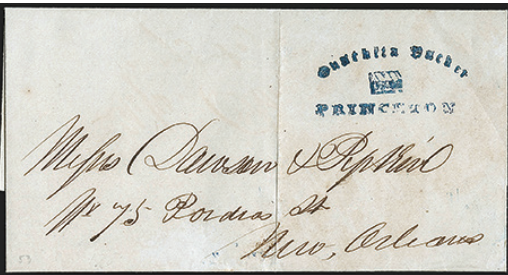 Ouachita Packet
PRINCETON
Messrs Dawson & Pipkin
No 75 Poydras St
New, Orleans
53